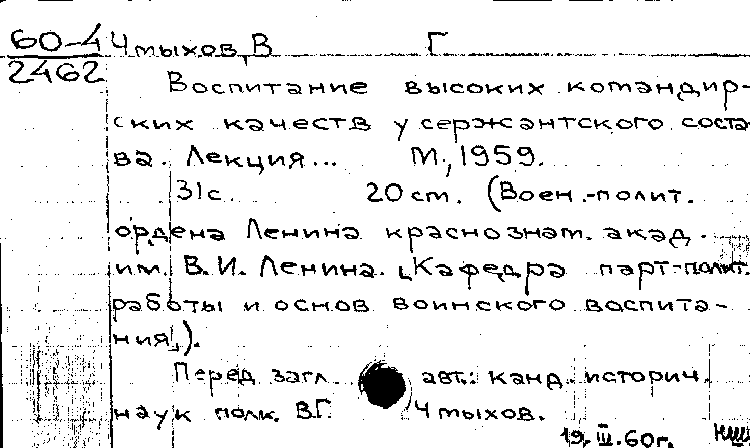 60-4 Чмыхов, В Г
2462
Воспитание высоких командир-
ских качеств у сержантского соста
ва. Лекция... М., 1959.
31с. 20 cm. (Воен.-полит.
ордена Ленина краснознам. акад.
им. В.И. Ленина. [Кафедра парт-полит.
работы и основ воинского воспита-
ния]).
Перед загл. авт.: канд. историч.
наук полк. В.Г. Чмыхов.
19.III.60г.